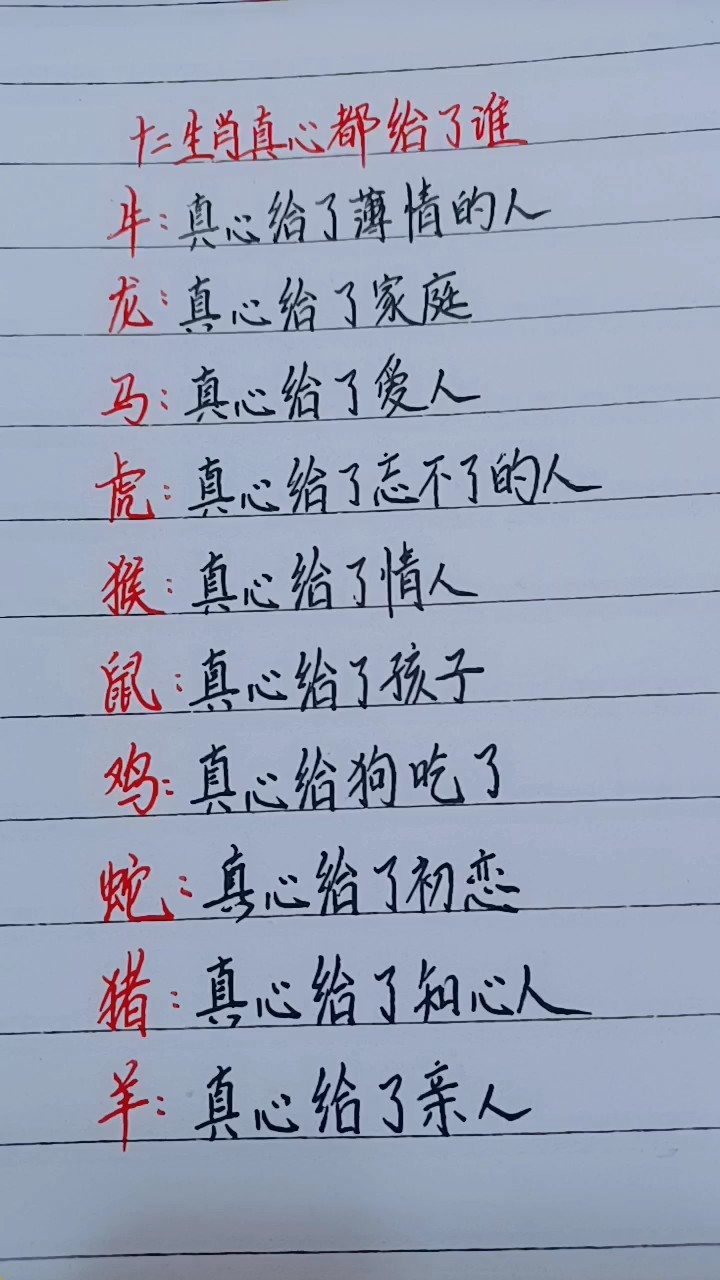 十二生肖真心都给了谁
牛:真心给了薄情的人
龙:真心给了家庭
马:真心给了爱人
虎:真心给了忘不了的人
猴:真心给了情人
鼠:真心给了孩子
鸡:真心给狗吃了
蛇:真心给了初恋
猪:真心给了知心人
羊:真心给了亲人